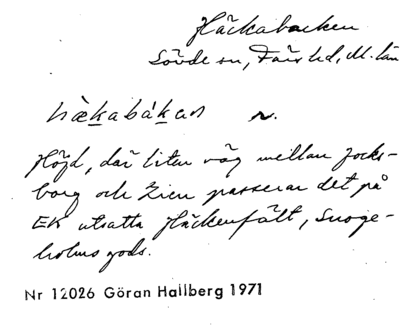 Häckabacken
Sövde sn, Färs hd, M. län
hæ̀kabákan n.
Höjd, där liten väg mellan Jocks-
borg och Zien passerar det på
EK utsatta Häckenfält, Snoge-
holms gods.
Nr 12026 Göran Hallberg 1971